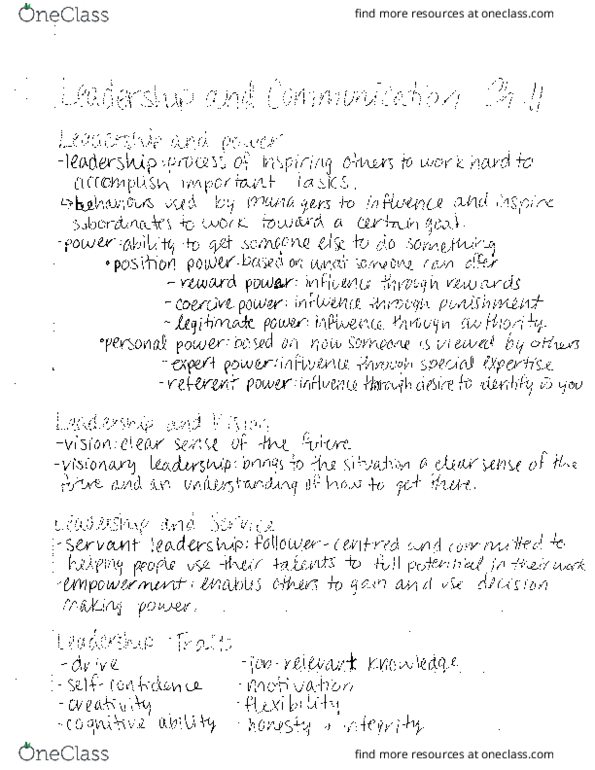 OneClass
find more resources at oneclass.com
Leadership and Communication Ch 11
Leadership and power
-leadership: process of inspiring others to work hard to
accomplish important tasks.
↳behaviours used by managers to influence and inspire
subordinates to work toward a certain goal.
-power: ability to get someone else to do something
•position power-based on what someone can offer
-reward power: influence through rewards
-coercive power: influence through punishment
-legitimate power: influence through authority.
•personal power: based on how someone is viewed by others
-expert power: influence through special expertise
-referent power: influence through desire to identify w you
Leadership and Vision
-vision: clear sense of the future
-visionary leadership: brings to the situation a clear sense of the
future and an understanding of how to get there.
Leadership and Service
-servant leadership: follower-centred and committed to
helping people use their talents to full potential in their work
-empowerment: enables others to gain and use decision
making power.
Leadership Traits
-drive -job-relevant knowledge
-self-confidence -motivation
-creativity -flexibility
-cognitive ability -honesty + integrity
OneClass
find more resources at oneclass.com